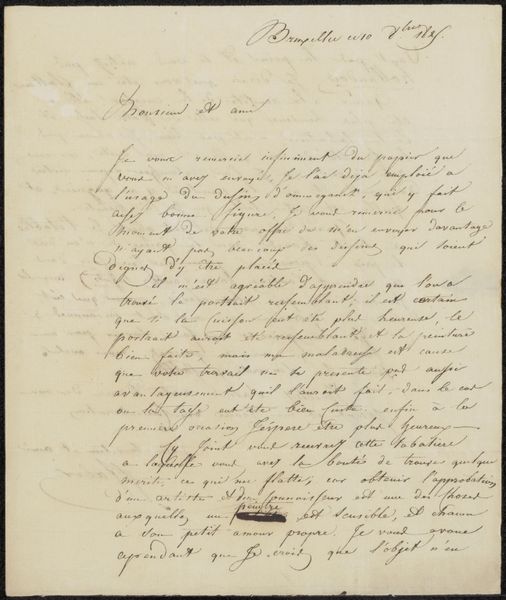 Bruxelles le 10 1825.
Monsieur et ami
Je vous remercie infiniment du papier que
vous m'avez envoyé, Je l'ai deja emploié a
l'usage du dessin d'ommeganck, qui y fait
assez bonne figure. Je vous remercie pour le
moment de votre offre de m'en envoyer davantage
n'ayant pas beaucoup des dessins qui soient
dignes d'y être placés
il m'est agréable d'apprendre que l'on a
trouvé le portrait ressemblant; il est certain
que si la cuisson eut été plus heureuse, le
portrait auroit été ressemblant et la peinture
bien faite, mais ma maladresse est cause
que votre travail ne se presente pas aussi
avantageusement qu'il l'auroit fait, dans le cas
ou la tasse eut été bien cuite. enfin a la
premiere occasion J'espere être plus heureux
Cy Joint vous recevrez cette tabatiere
a laquelle vous avez la bonté de trouver quelque
merite, ce qui me flatte, car obtenir l'approbation
d'un artiste et d'un connoisseur est une des choses
auxquelles un peintre est sensible, et chacun
a son petit amour propre. Je vous avoue
cependant que Je crois que l'objet n'en